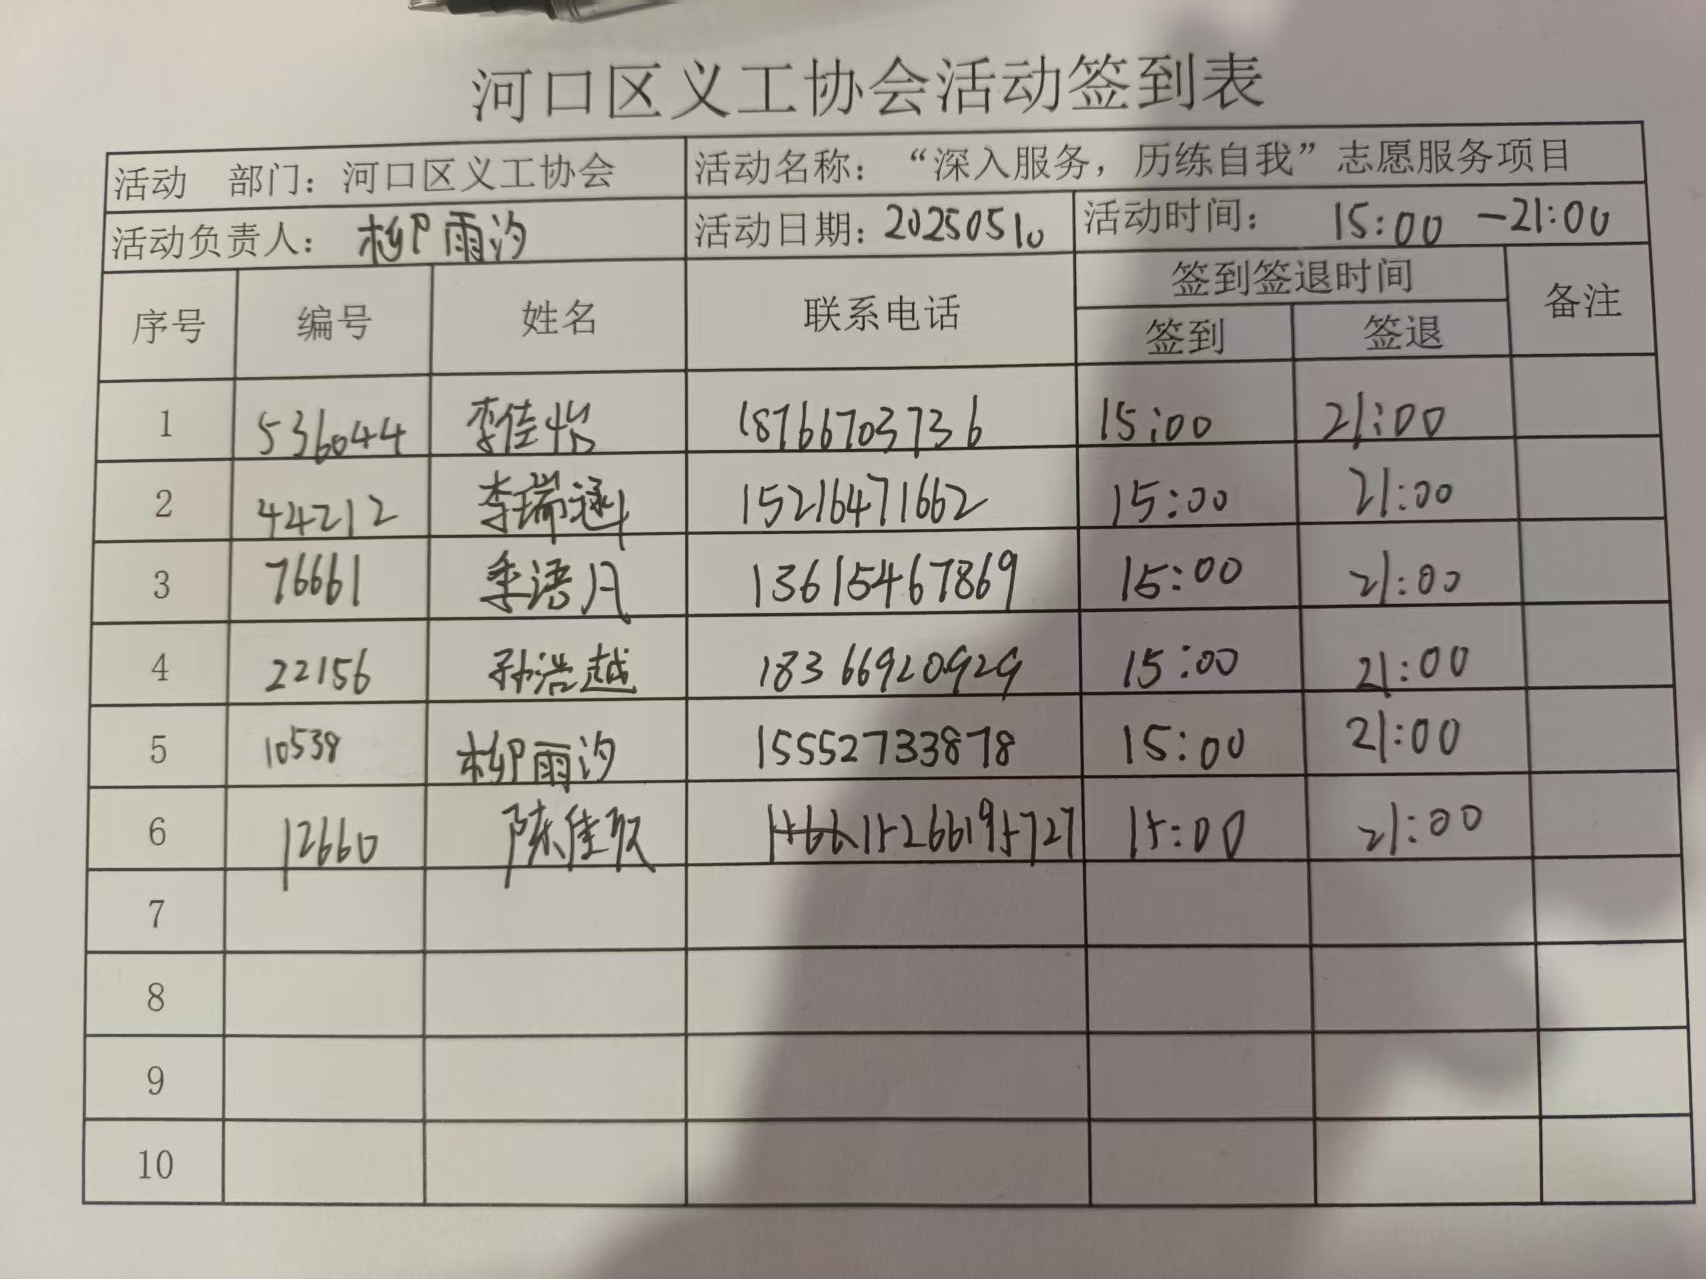 河口区义工协会活动签到表
活动 部门：河口区义工协会 活动名称：“深入服务，历练自我”志愿服务项目
活动负责人：柳雨汐 活动日期：20250510 活动时间：15:00 -21:00
序号 编号 姓名 联系电话 签到签退时间 备注
签到 签退
1 536044 李佳怡 18766703736 15:00 21:00
2 44212 李瑞 15216471662 15:00 21:00
3 76661 季语凡 13615467869 15:00 21:00
4 22156 孙浩越 18366920929 15:00 21:00
5 10538 柳雨汐 15552733878 15:00 21:00
6 12660 陈佳 15266195727 15:00 21:00
7
8
9
10